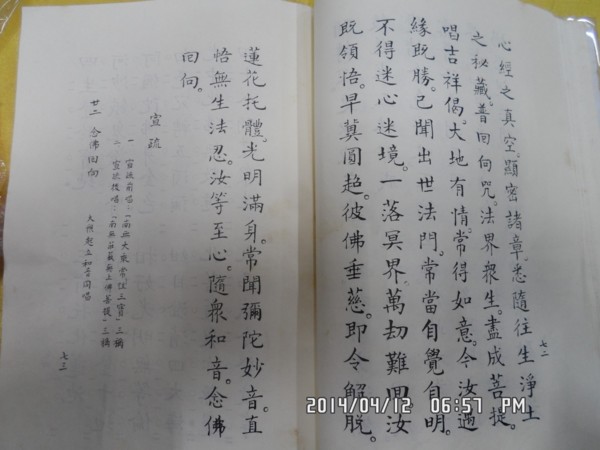 心經之真空。顯密諸章。悉隨往生淨土
之秘藏。普回向咒。法界眾生。盡成菩提。
唱吉祥偈。大地有情。常得如意。今汝遇
緣既勝。已聞出世法門。常當自覺自明。
不得迷心迷境。一落冥界。萬劫難回。汝
既領悟。早冀圓超。彼佛垂慈。即令解脫。
七二
蓮花托體。光明滿身。常聞彌陀妙音。直
悟無生法忍。汝等至心。隨眾和音。念佛
回向。
宣疏
一 宣疏前唱:「南無大乘常住三寶」三稱
二 宣疏後唱:「南無莊嚴無上佛菩提」三稱
廿二 念佛回向
大眾起立和音同唱
七三
2014/04/12 06:57 PM